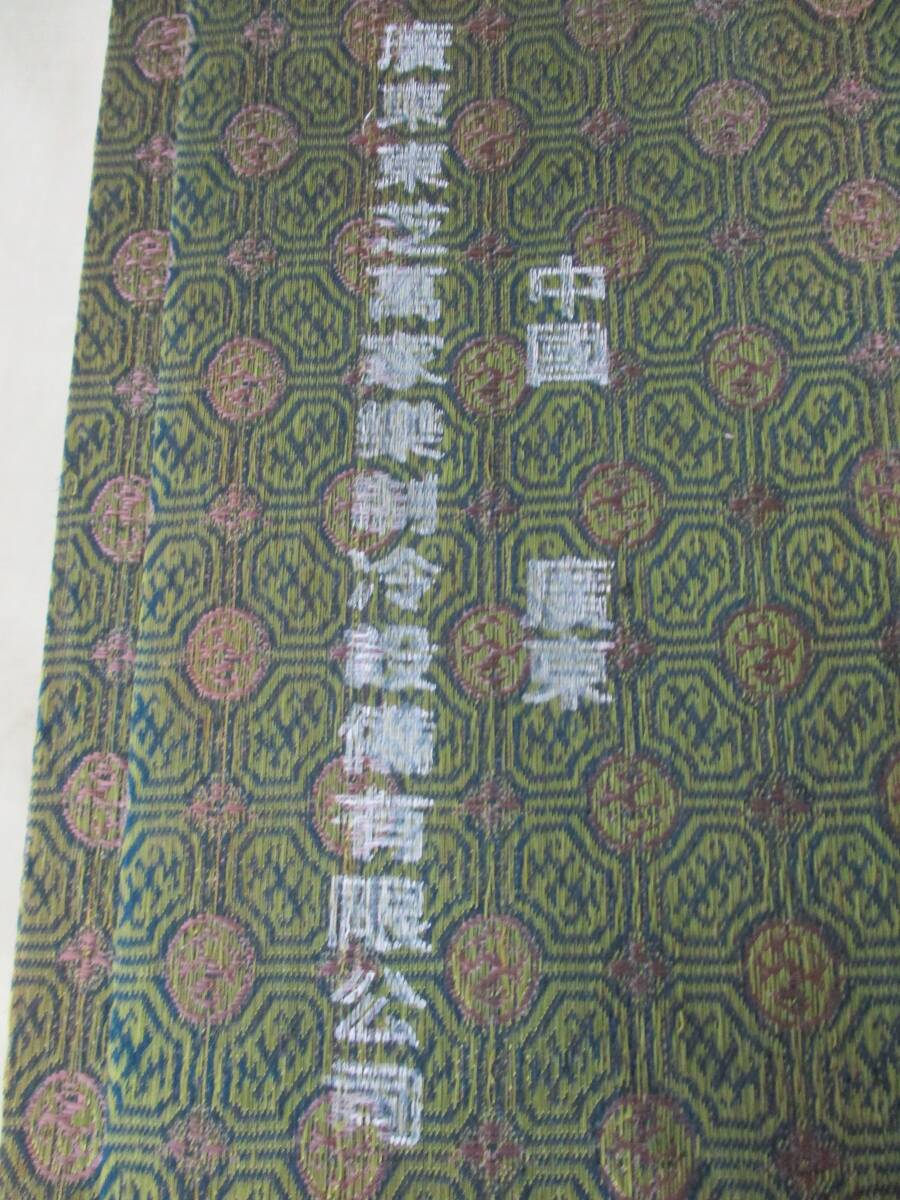 中國 廣東
廣東東芝萬家樂制冷設備有限公司